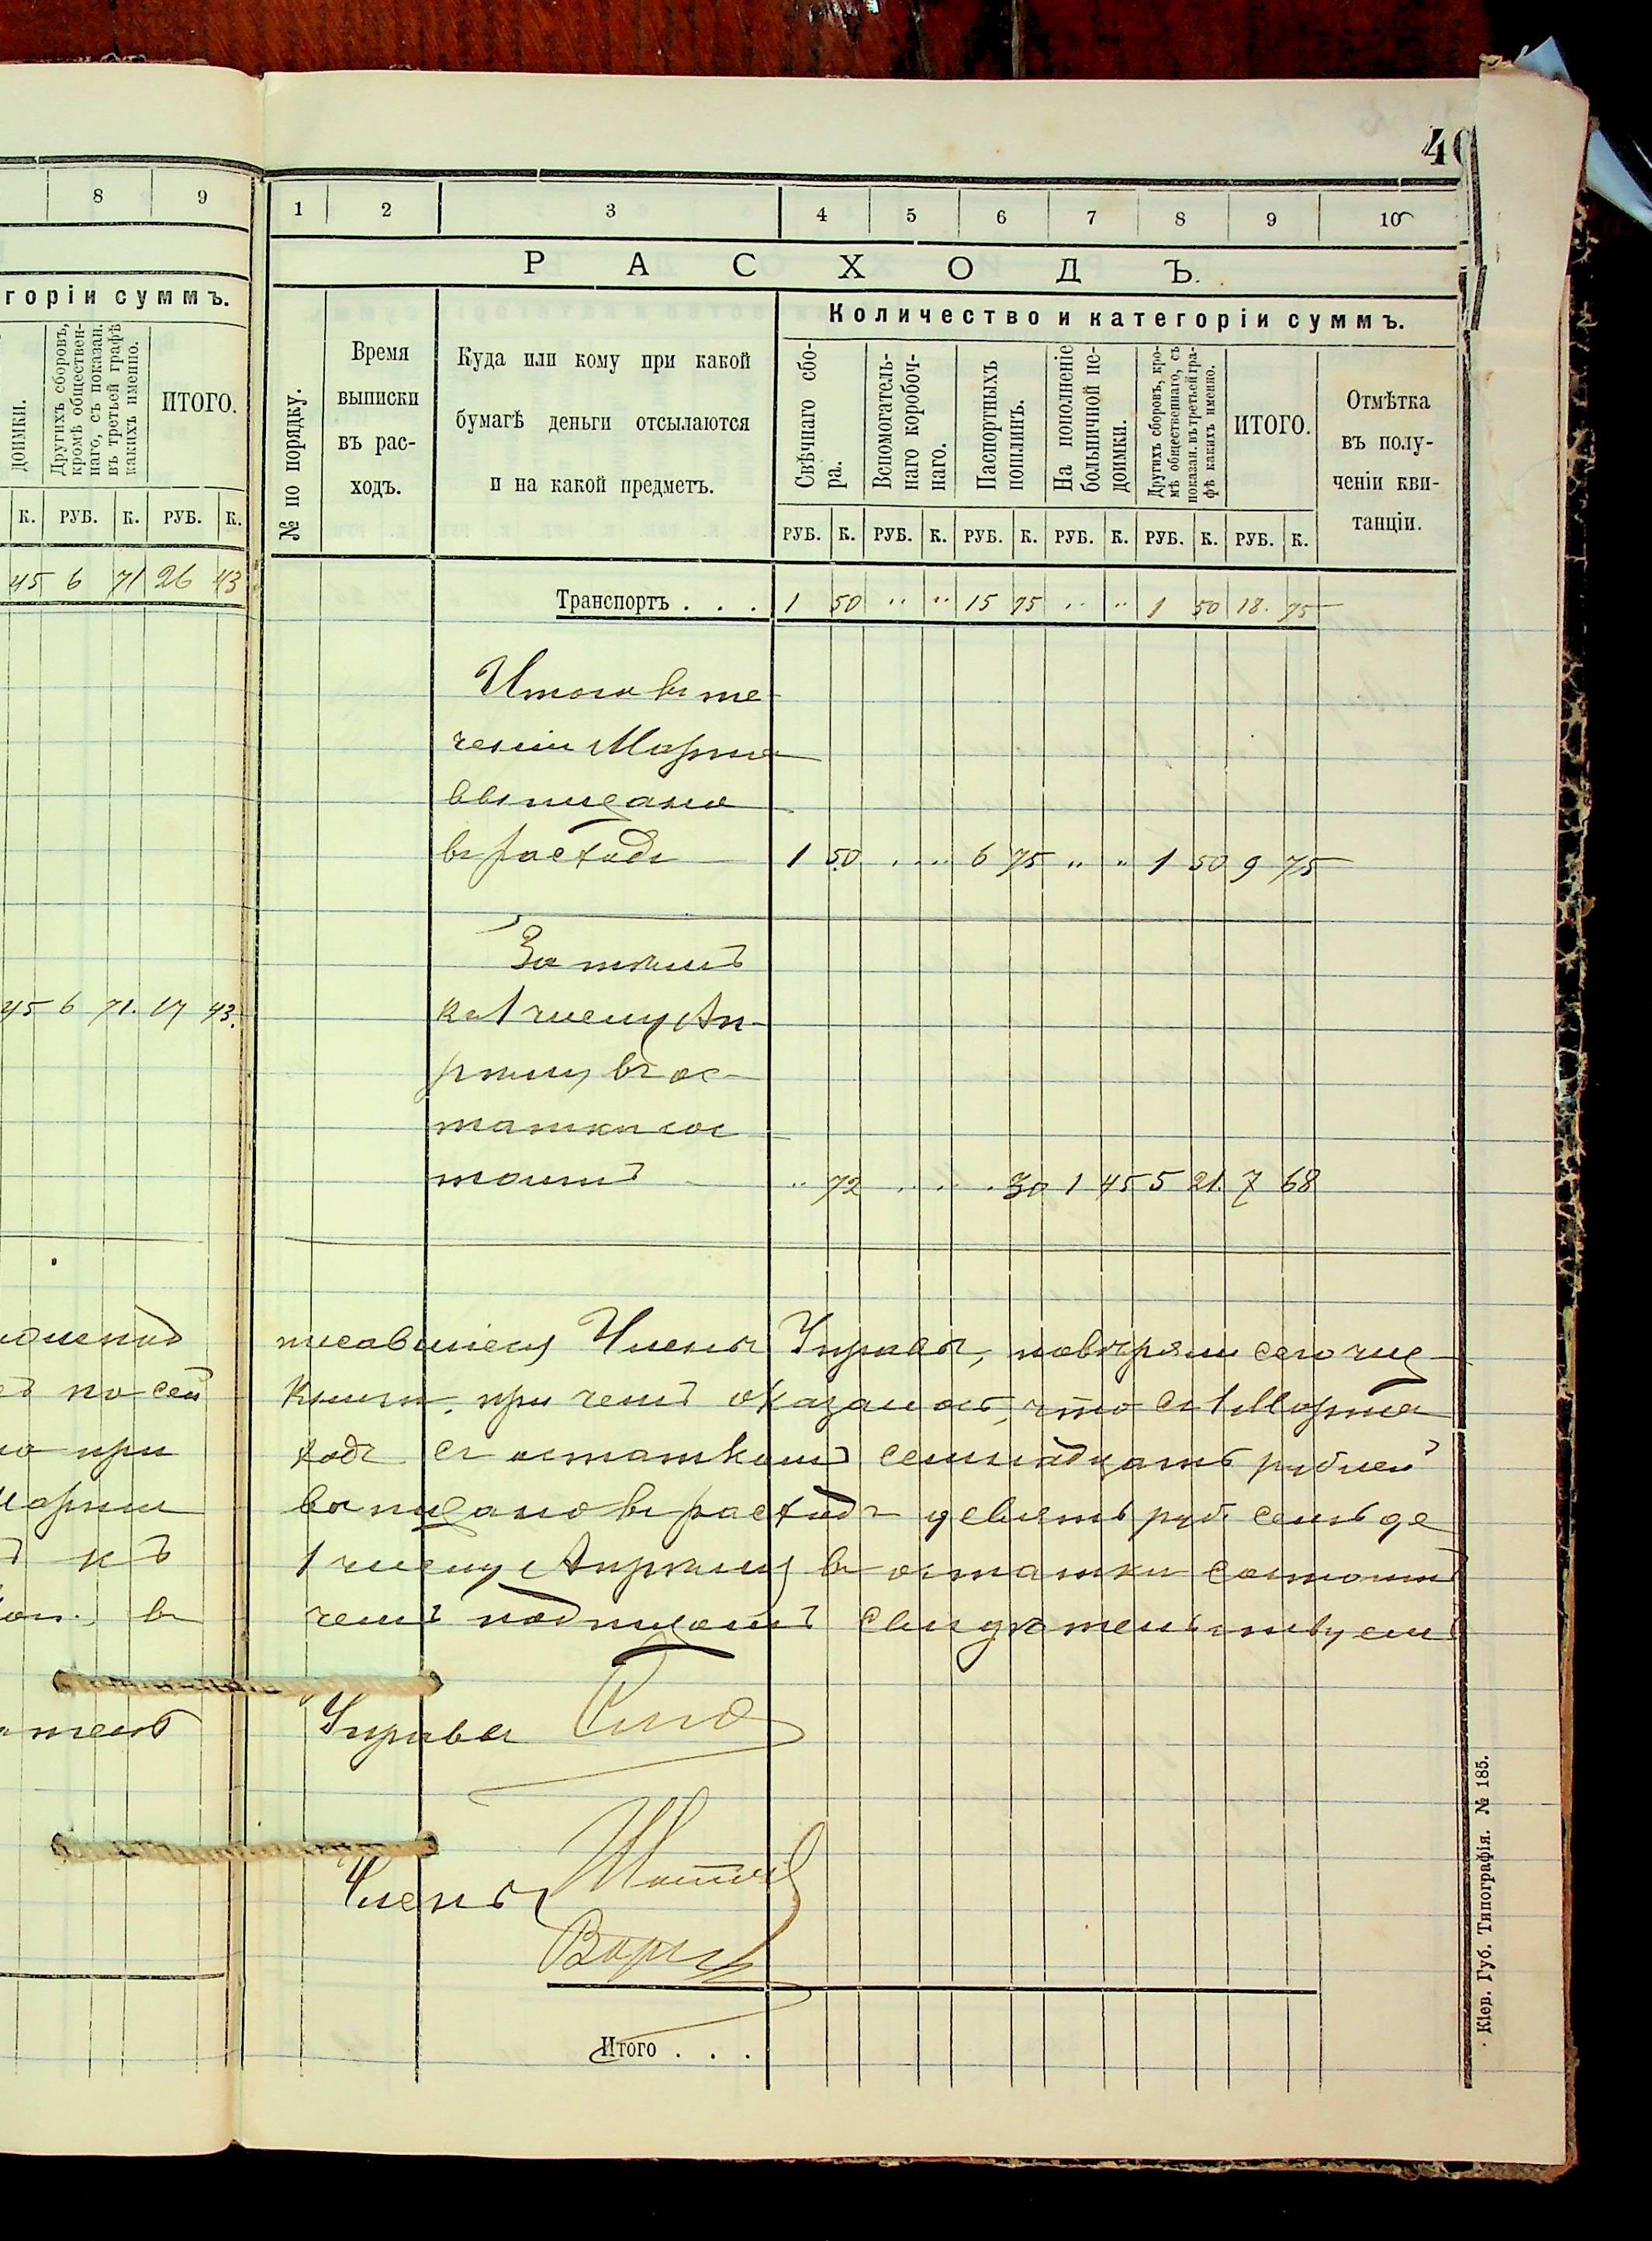 8 9
горіи суммъ.
доимки.
Другихъ сборовъ,
кромѣ обществен-
наго, съ показан.
въ третьей графѣ
какихъ именно.
ИТОГО.
К. РУБ. К. РУБ. К.
45 6 71 26 43
45 6 71. 17 43.
по сей
при
къ
въ
40
1 2 3 4 5 6 7 8 9 10
РАСХОДЪ.
№ по порядку.
Время
выписки
въ рас-
ходъ.
Куда или кому при какой
бумагѣ деньги отсылаются
и на какой предметъ.
Количество и категоріи суммъ.
Свѣчнаго сбо-
ра.
Вспомогатель-
наго коробоч-
наго.
Паспортныхъ
пошлинъ.
На пополненіе
больничной не-
доимки.
Другихъ сборовъ, кро-
мѣ общественнаго, съ
показан. въ третьей гра-
фѣ какихъ именно.
ИТОГО.
Отмѣтка
въ полу-
ченіи кви-
танціи.
РУБ. К. РУБ. К. РУБ. К. РУБ. К. РУБ. К. РУБ. К.
Транспортъ . . . 1 50 " " 15 75 " " 1 50 18. 75
Итого въ те-
ченіи Марта
выписано
въ расходъ 1 50 . . . . 6 75 " " 1 50 9 75
Затѣмъ
къ 1 числу Ап-
рѣлю въ ос-
таткѣ сос-
тоитъ " 72 . . . . 30 1 45 5 21. 7 68
писавшіеся Члены Управы, повѣряли сего числ
книги, при чемъ оказалось, что съ 1 Марта
ходъ съ остаткомъ семнадцать рублей
выписано въ расходъ девять руб. семьде
1 числу Апрѣлю въ остаткѣ состоитъ
чемъ подписомъ свидѣтельствуемъ
Управы
Члены
Итого . . .
Кіев. Губ. Типографія. № 185.